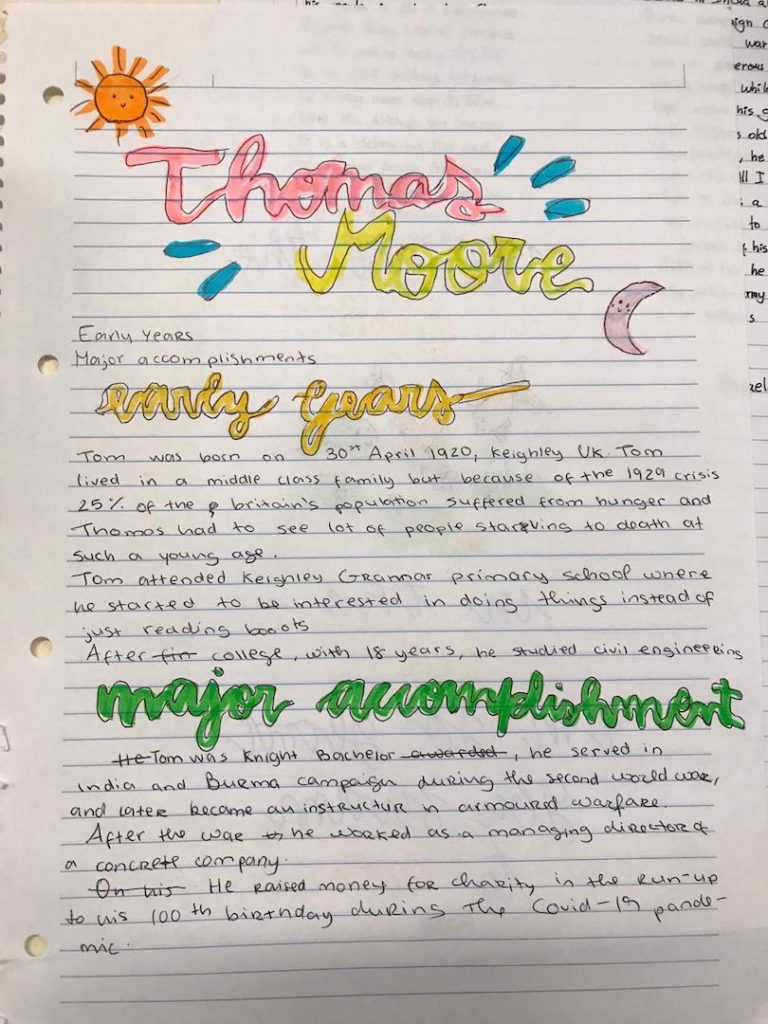 Thomas
Moore
Early Years
Major accomplishments
early years
Tom was born on 30st April 1920, Keighley UK. Tom
lived in a middle class family but because of the 1929 crisis
25% of the britain's population suffered from hunger and
Thomas had to see lot of people starving to death at
such a young age.
Tom attended Keighley Grannar primary school where
he started to be interested in doing things instead of
just reading boooks
After fin college, with 18 years, he studied civil engineering
major accomplishment
He Tom was Knight Bachelor awarded, he served in
India and Burma campaign during the second world war,
and later became an instructur in armoured warfare.
After the war he worked as a managing director of
a concrete company.
On his He raised money for charity in the run-up
to his 100th birthday during the Covid-19 pande-
mic.
ign
war
erous
while
his g
s old
, he
ll I
a
to
his
he
rmy
s